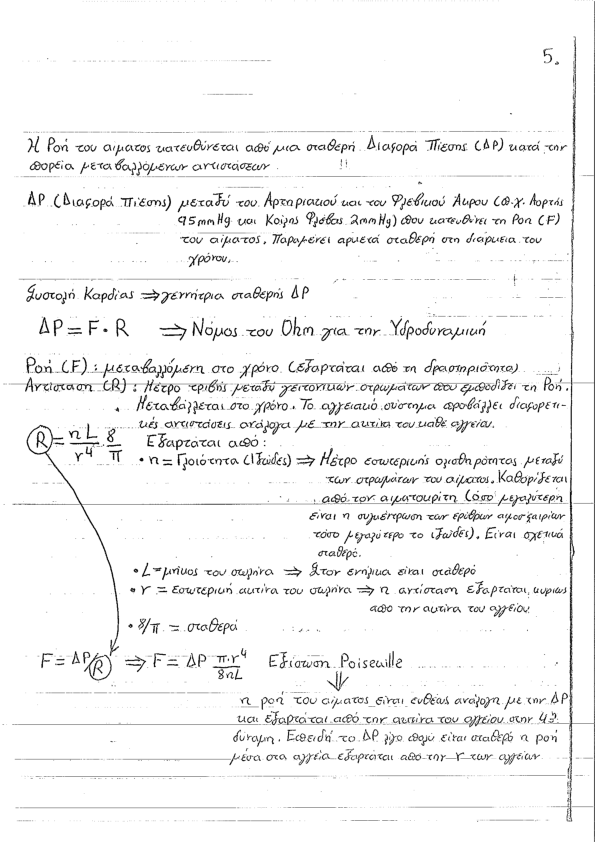 5.
Η Ροή του αίματος κατευθύνεται από μια σταθερή Διαφορά Πίεσης (ΔΡ) κατά την
πορεία μεταβαλλόμενων αντιστάσεων. !!
ΔΡ (Διαφορά Πιέσης) μεταξύ του Αρτηριακού και του Φλεβικού Άκρου (π.χ. Αορτής
95mmHg και Κοίλης Φλέβας 2mmHg) που κατευθύνει τη Ροή (F)
του αίματος. Παραμένει αρκετά σταθερή στη διάρκεια του
χρόνου.
Συστολή Καρδίας ⇒ γεννήτρια σταθερής ΔΡ
ΔΡ = F · R ⇒ Νόμος του Ohm για την Υδροδυναμική
Ροή (F) : μεταβαλλόμενη στο χρόνο (εξαρτάται από τη δραστηριότητα)
Αντίσταση (R) : Μέτρο τριβής μεταξύ γειτονικών στρωμάτων που εμποδίζει τη Ροή.
Μεταβάλλεται στο χρόνο. Το αγγειακό σύστημα προβάλλει διαφορετι-
κές αντιστάσεις ανάλογα με την ακτίνα του κάθε αγγείου.
R = nL/r⁴ · 8/π Εξαρτάται από:
• n = Γλοιότητα (Ιξώδες) ⇒ Μέτρο εσωτερικής ολισθηρότητας μεταξύ
των στρωμάτων του αίματος. Καθορίζεται
από τον αιματοκρίτη (όσο μεγαλύτερη
είναι η συγκέντρωση των ερυθρών αιμοσφαιρίων
τόσο μεγαλύτερο το ιξώδες). Είναι σχετικά
σταθερό.
• L = μήκος του σωλήνα ⇒ Στον ενήλικα είναι σταθερό
• r = Εσωτερική ακτίνα του σωλήνα ⇒ η αντίσταση εξαρτάται κυρίως
από την ακτίνα του αγγείου
• 8/π = σταθερά
F = ΔΡ/R ⇒ F = ΔΡ π·r⁴/8nL Εξίσωση Poiseuille
⇓
η ροή του αίματος είναι ευθέως ανάλογη με την ΔΡ
και εξαρτάται από την ακτίνα του αγγείου στην 4η
δύναμη. Επειδή το ΔΡ λίγο πολύ είναι σταθερό η ροή
μέσα στα αγγεία εξαρτάται από την r των αγγείων